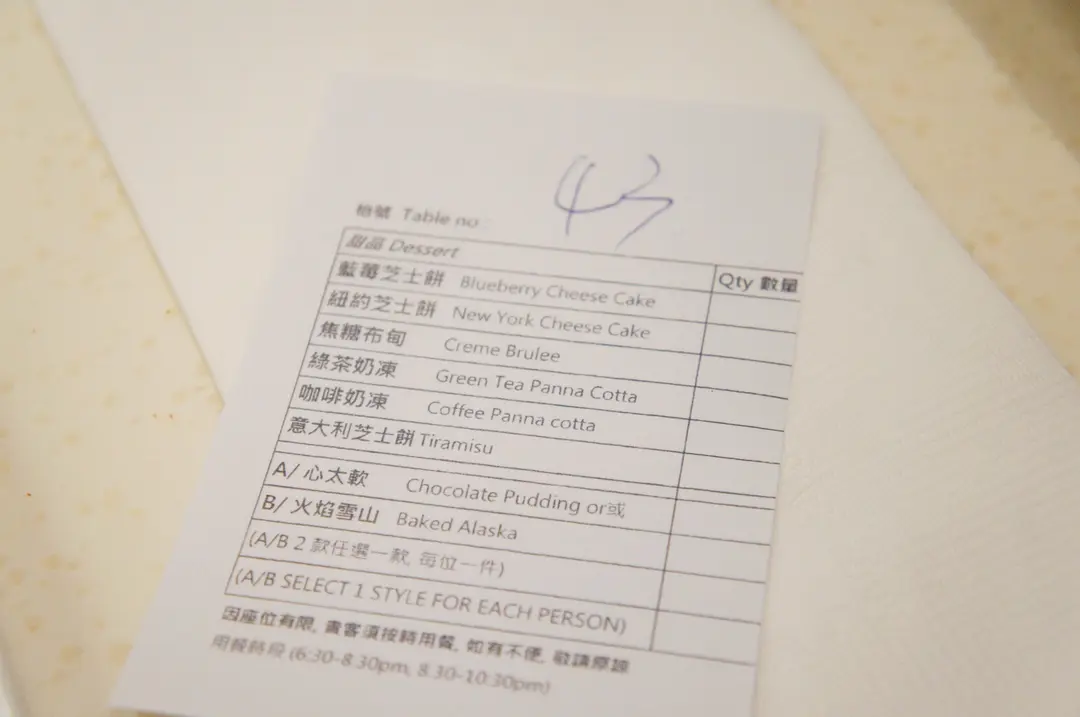 43
枱號 Table no :
甜品 Dessert Qty 數量
藍莓芝士餅 Blueberry Cheese Cake
紐約芝士餅 New York Cheese Cake
焦糖布甸 Creme Brulee
綠茶奶凍 Green Tea Panna Cotta
咖啡奶凍 Coffee Panna cotta
意大利芝士餅 Tiramisu
A/ 心太軟 Chocolate Pudding or或
B/ 火焰雪山 Baked Alaska
(A/B 2 款任選一款, 每位一件)
(A/B SELECT 1 STYLE FOR EACH PERSON)
因座位有限, 貴客須按時用餐, 如有不便, 敬請原諒
用餐時段 (6:30-8:30pm, 8:30-10:30pm)